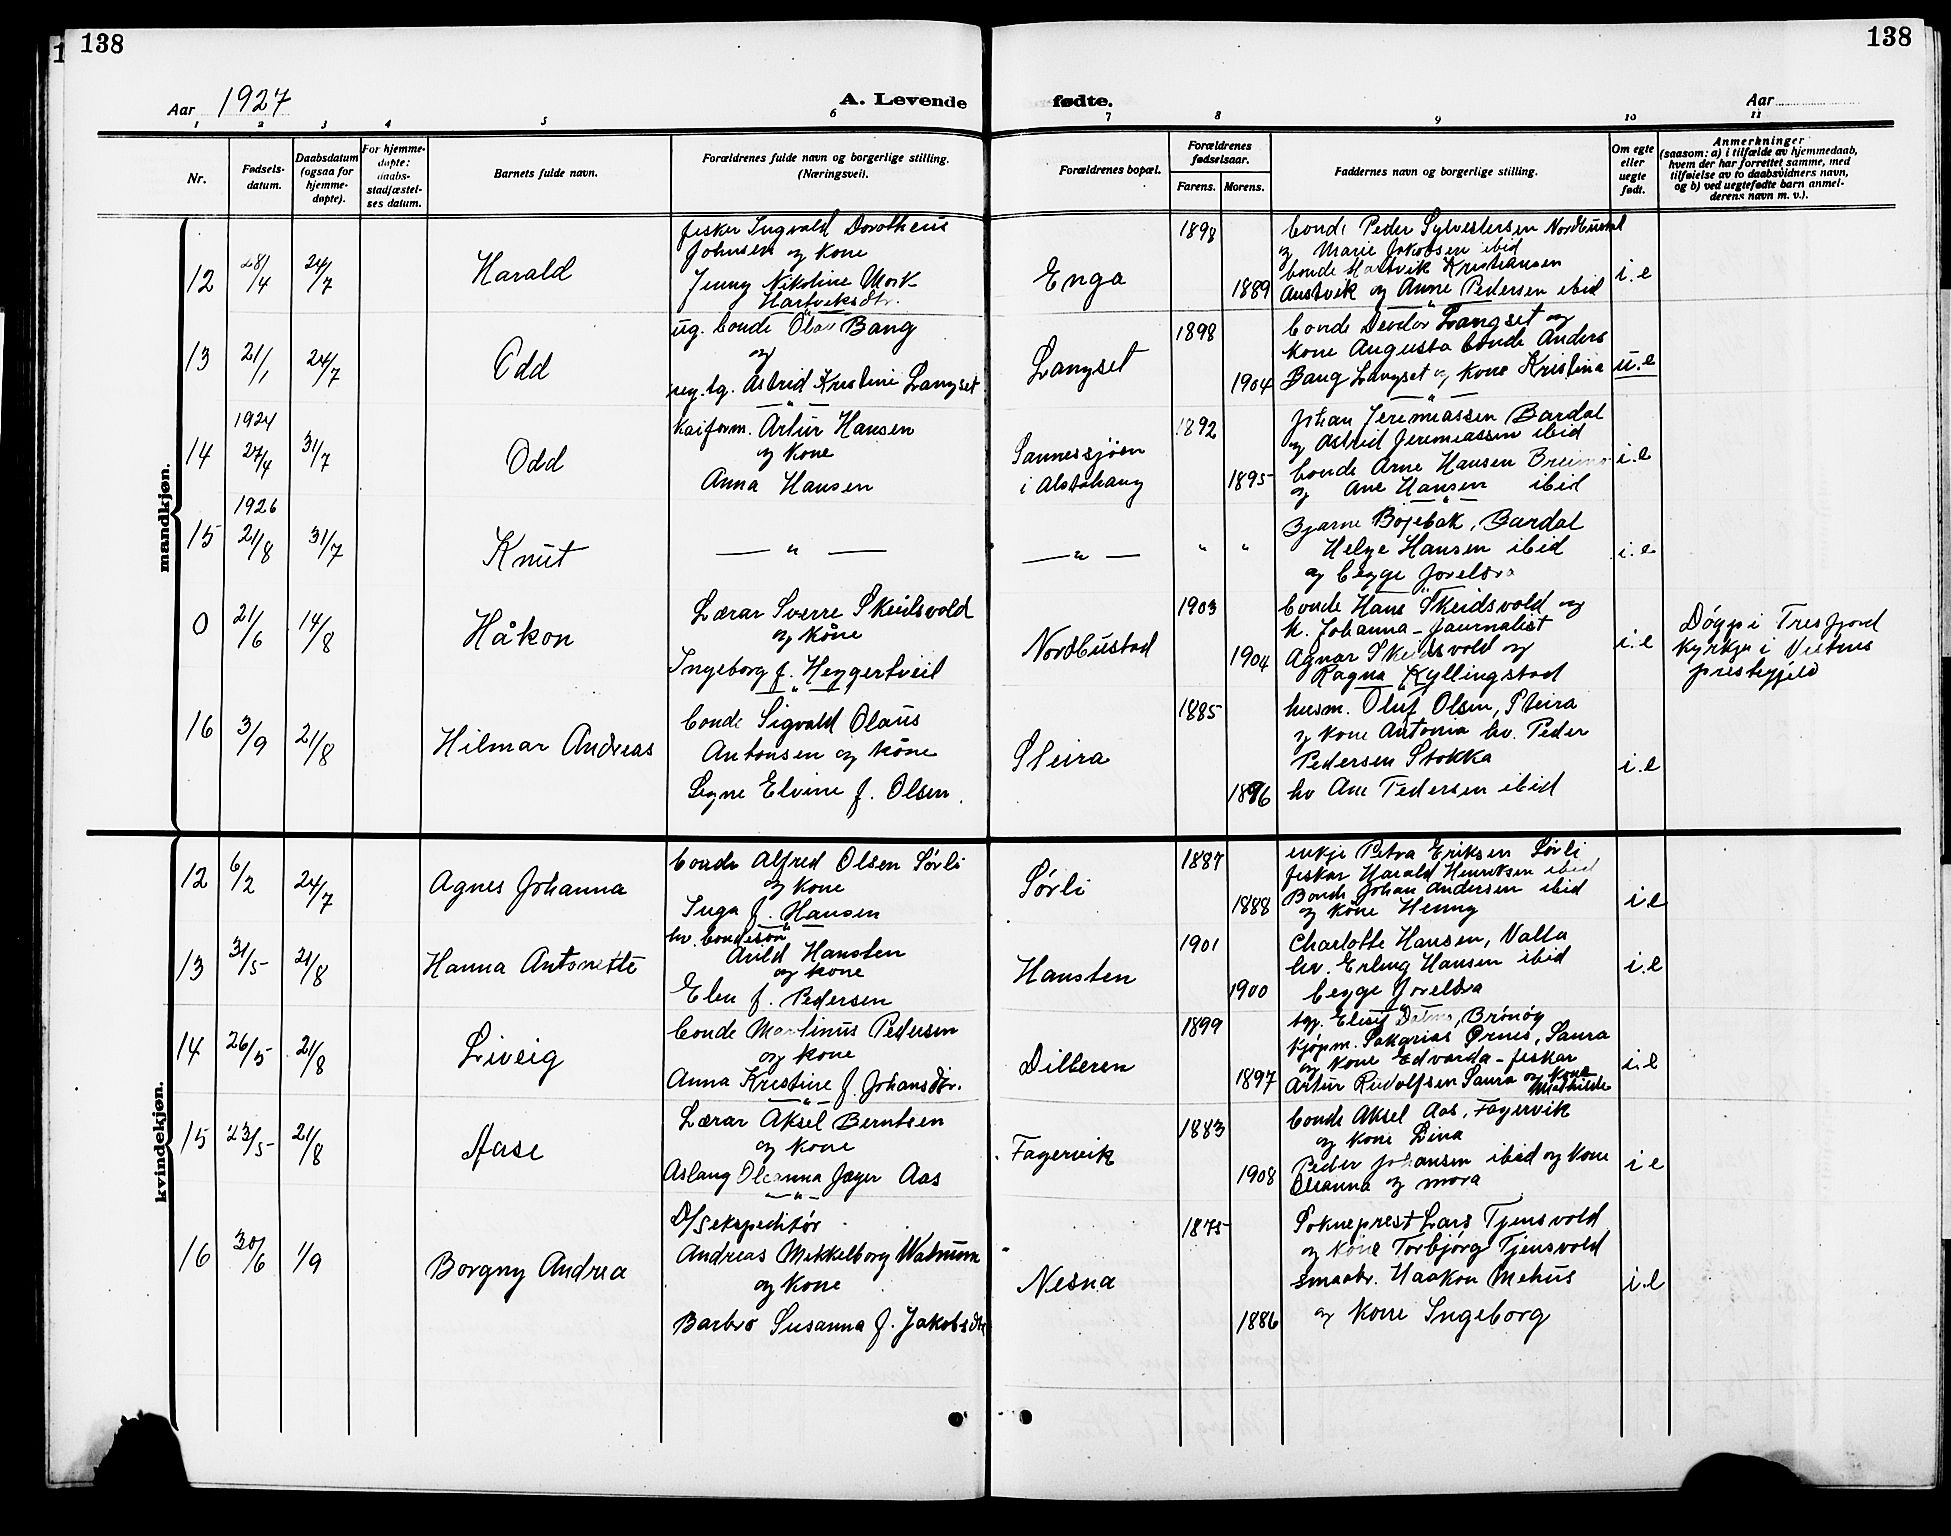 138
138
Aar 1927
A. Levende fødte.
Aar
1 2 3 4 5 6 7 8 9 10 11
Nr.
Fødsels-
datum.
Daabsdatum
(ogsaa for
hjemme-
døpte).
For hjemme-
døpte:
daabs-
stadfæstel-
ses datum.
Barnets fulde navn.
Forældrenes fulde navn og borgerlige stilling.
(Næringsvei).
Forældrenes bopæl.
Forældrenes
fødselsaar.
Farens. Morens.
Faddernes navn og borgerlige stilling.
Om egte
eller
uegte
født.
Anmerkninger
(saasom: a) i tilfælde av hjemmedaab,
hvem der har forrettet samme, med
tilføielse av to daabsvidners navn,
og b) ved uegtefødte barn anmel-
derens navn m. v.).
mandkjøn.
12
28/4
24/7
Harald
fisker Ingvald Dorotheus
Johnsen og kone
Jenny Nikoline Mork
Hartviksdtr.
Enga
1898
1889
bonde Peder Sylvestersen Nordbustad
og Marie Jakobsen ibid
bonde Hartvik Kristiansen
Austvik og Anne Pedersen ibid
i.e
13
21/1
24/7
Odd
ug. bonde Olav Bang
og
ug. tg. Astrid Kristine Langset
Langset
1898
1904
bonde Langset og
kone Augusta bonde Anders
Bang Langset og kone Kristina
u.e
14
1924
27/4
31/7
Odd
kaiform. Artur Hansen
og kone
Anna Hansen
Sannessjøen
i Alstahaug
1892
1895
Johan Jeremiassen Bardal
og Astrid Jeremiassen ibid
bonde Arne Hansen Breimo
og Ane Hansen ibid
i.e
15
1926
21/8
31/7
Knut
— " —
— " —
" "
Bjarne Bøjebak, Bardal
Helge Hansen ibid
og begge foreldra
i.e
0
21/6
14/8
Håkon
Lærar Sverre Skeidsvold
og kone
Ingeborg f. Heggertveit
Nordbustad
1903
1904
bonde Hans Skeidsvold og
k. Johanna - Journalist
Agnar Skeidsvold og
Ragna Kyllingstad
i.e
Døypt i Tresfjord
kyrkje i Vestnes
prestegjeld
16
3/9
21/8
Hilmar Andreas
bonde Sigvald Olaus
Antonsen og kone
Signe Elvine f. Olsen
Steira
1885
1896
husm. Oluf Olsen, Steira
og kone Antonia hv. Peder
Pedersen Stokka
hv Ane Pedersen ibid
i.e
kvindekjøn.
12
6/2
24/7
Agnes Johanna
bonde Alfred Olsen Sørli
og kone
Inga f. Hansen
Sørli
1887
1888
enkje Petra Eriksen Sørli
fiskar Harald Henriksen ibid
Bonde Johan Andersen ibid
og kone Henny
i.e
13
31/5
21/8
Hanna Antonette
hv. bondeson
Arild Hansten
og kone
Elen f. Pedersen
Hansten
1901
1900
Charlotte Hansen, Valla
hv. Erling Hansen ibid
begge foreldra
i.e
14
26/5
21/8
Liveig
bonde Martinus Pedersen
og kone
Anna Kristine f. Johansdtr.
Dilteren
1899
1897
tgp. Elisif Brønøy
kjøpm. Sakarias Ørnes, Saura
og kone Edvarda - fiskar
Artur Rudolfsen Saura og kone
Mathilde
i.e
15
23/5
21/8
Aase
Lærar Aksel Berntsen
og kone
Aslaug Oleanna Jæger Aas
Fagervik
1883
1908
bonde Aksel Aas, Fagervik
og kone Lina
Peder Johansen ibid og kone
Oleanna og mora
i e
16
30/6
1/9
Borgny Andrea
D/Sekspeditør
Andreas Mekkelborg Walnum
og kone
Barbro Susanna f. Jakobsdtr
Nesna
1875
1886
Sokneprest Lars Tjensvold
og kone Torbjørg Tjensvold
smaabr. Haakon Mehus
og kone Ingeborg
i.e